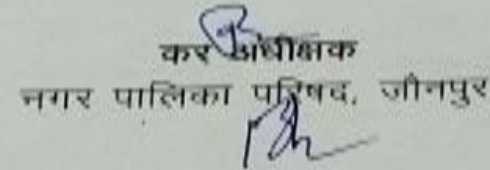 कर अधीक्षक
नगर पालिका परिषद, जौनपुर